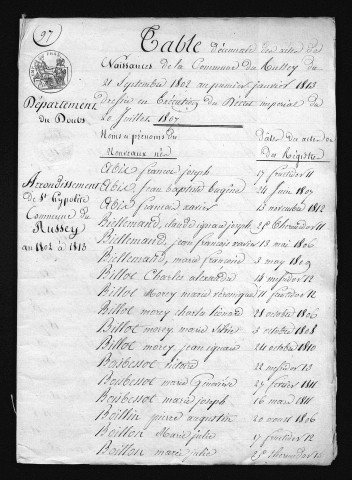 97
Table décennale des actes de
Naissances de la Commune du Russey du
21 Septembre 1802 au premier janvier 1813
Dressée en Exécution du Décret impérial du
20 Juillet 1807
Département
du Doubs
Arrondissement
de St hypolite
Commune du
Russey
an 1802 à 1813
Noms et prénoms des
Nouveaux nés
Dates des actes ou
du Registre
françois joseph 17 fructidor 11
jean baptiste Eugène 24 juin 1807
françois xavier 13 novembre 1812
Billemand, claude ignace joseph 25 thermidor 11
Billemand, jean françois xavier 13 mai 1806
Billemand, marie françoise 3 may 1809
Billot Charles alexandre 14 messidor 12
Billot Morey marie véronique 11 fructidor 12
Billot morey charles léonard 28 octobre 1806
Billot morey marie silvie 5 octobre 1808
Billot morey jean ignace 21 octobre 1810
Boibessot victoire 22 messidor 13
Boibessot marie Geneviève 27 février 1811
Boibessot marie joseph 16 mars 1811
Boillin pierre augustin 20 aout 1806
Boillon Marie julie 17 fructidor 12
Boillon marie julie